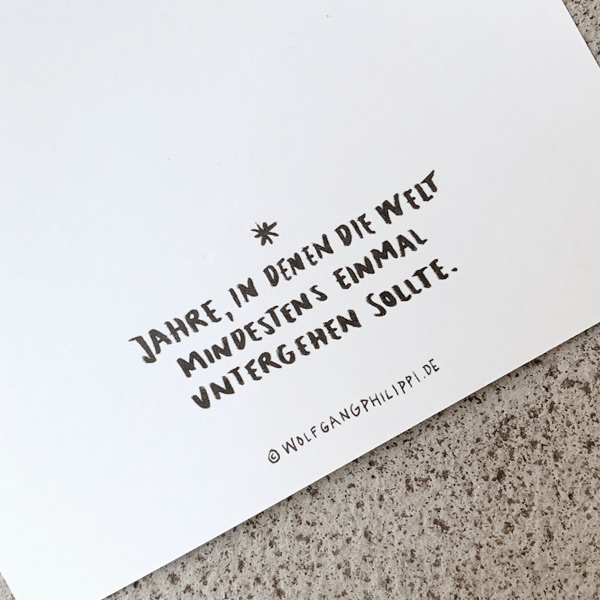 *
JAHRE, IN DENEN DIE WELT
MINDESTENS EINMAL
UNTERGEHEN SOLLTE.
© WOLFGANGPHILIPPI.DE